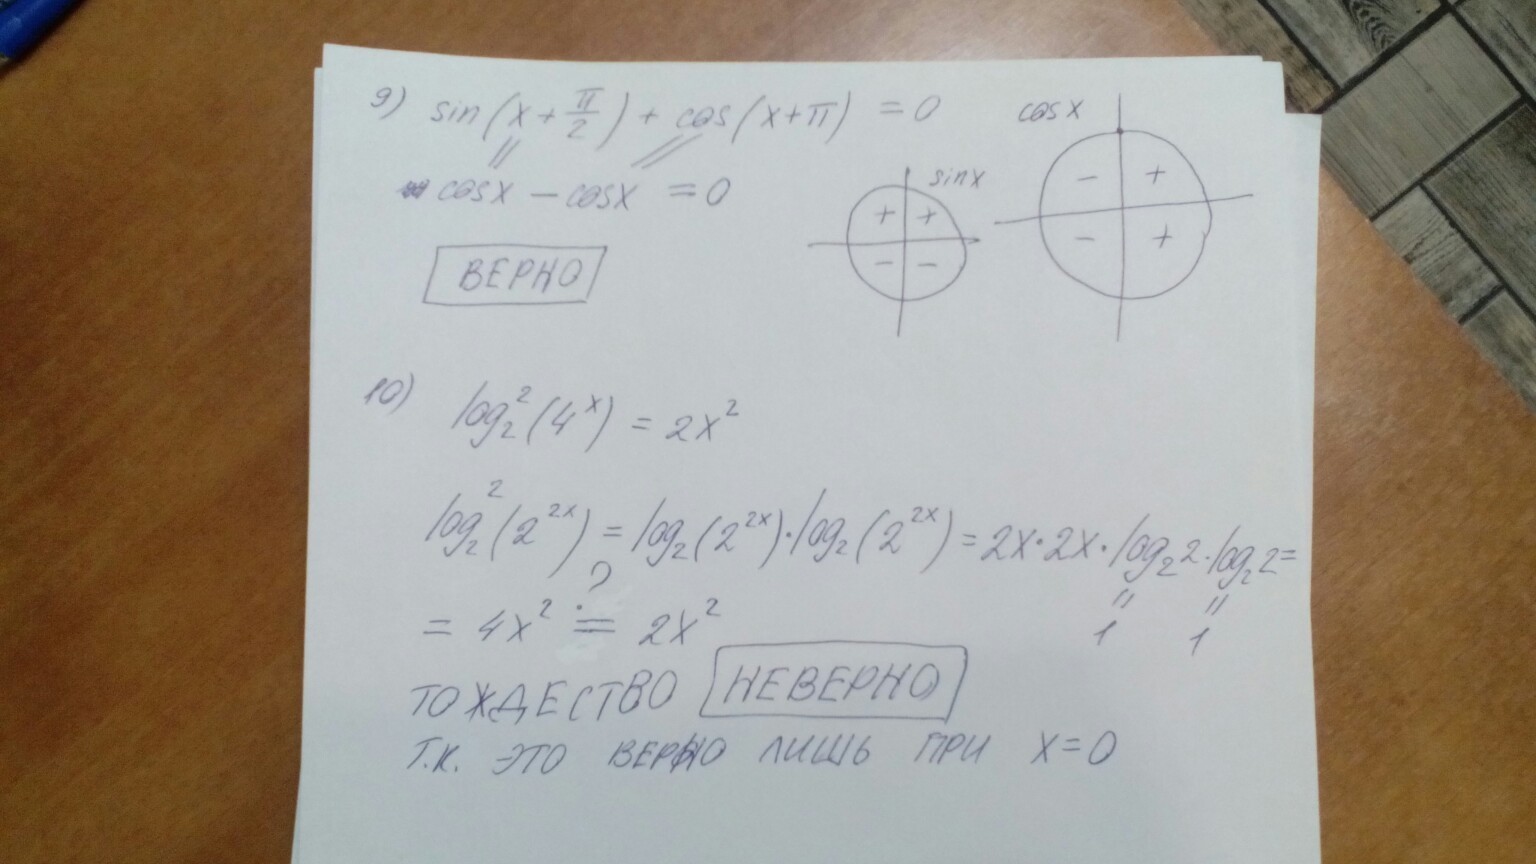 9) sin(x + π/2) + cos(x+π) = 0
cosx − cosx = 0
ВЕРНО
sinx
+ +
− −
cosx
− +
− +
10) log₂²(4ˣ) = 2x²
log₂²(2²ˣ) = log₂(2²ˣ)·log₂(2²ˣ) = 2x·2x·log₂2·log₂2 =
1 1
= 4x² ≟ 2x²
ТОЖДЕСТВО НЕВЕРНО
Т.К. ЭТО ВЕРНО ЛИШЬ ПРИ x=0